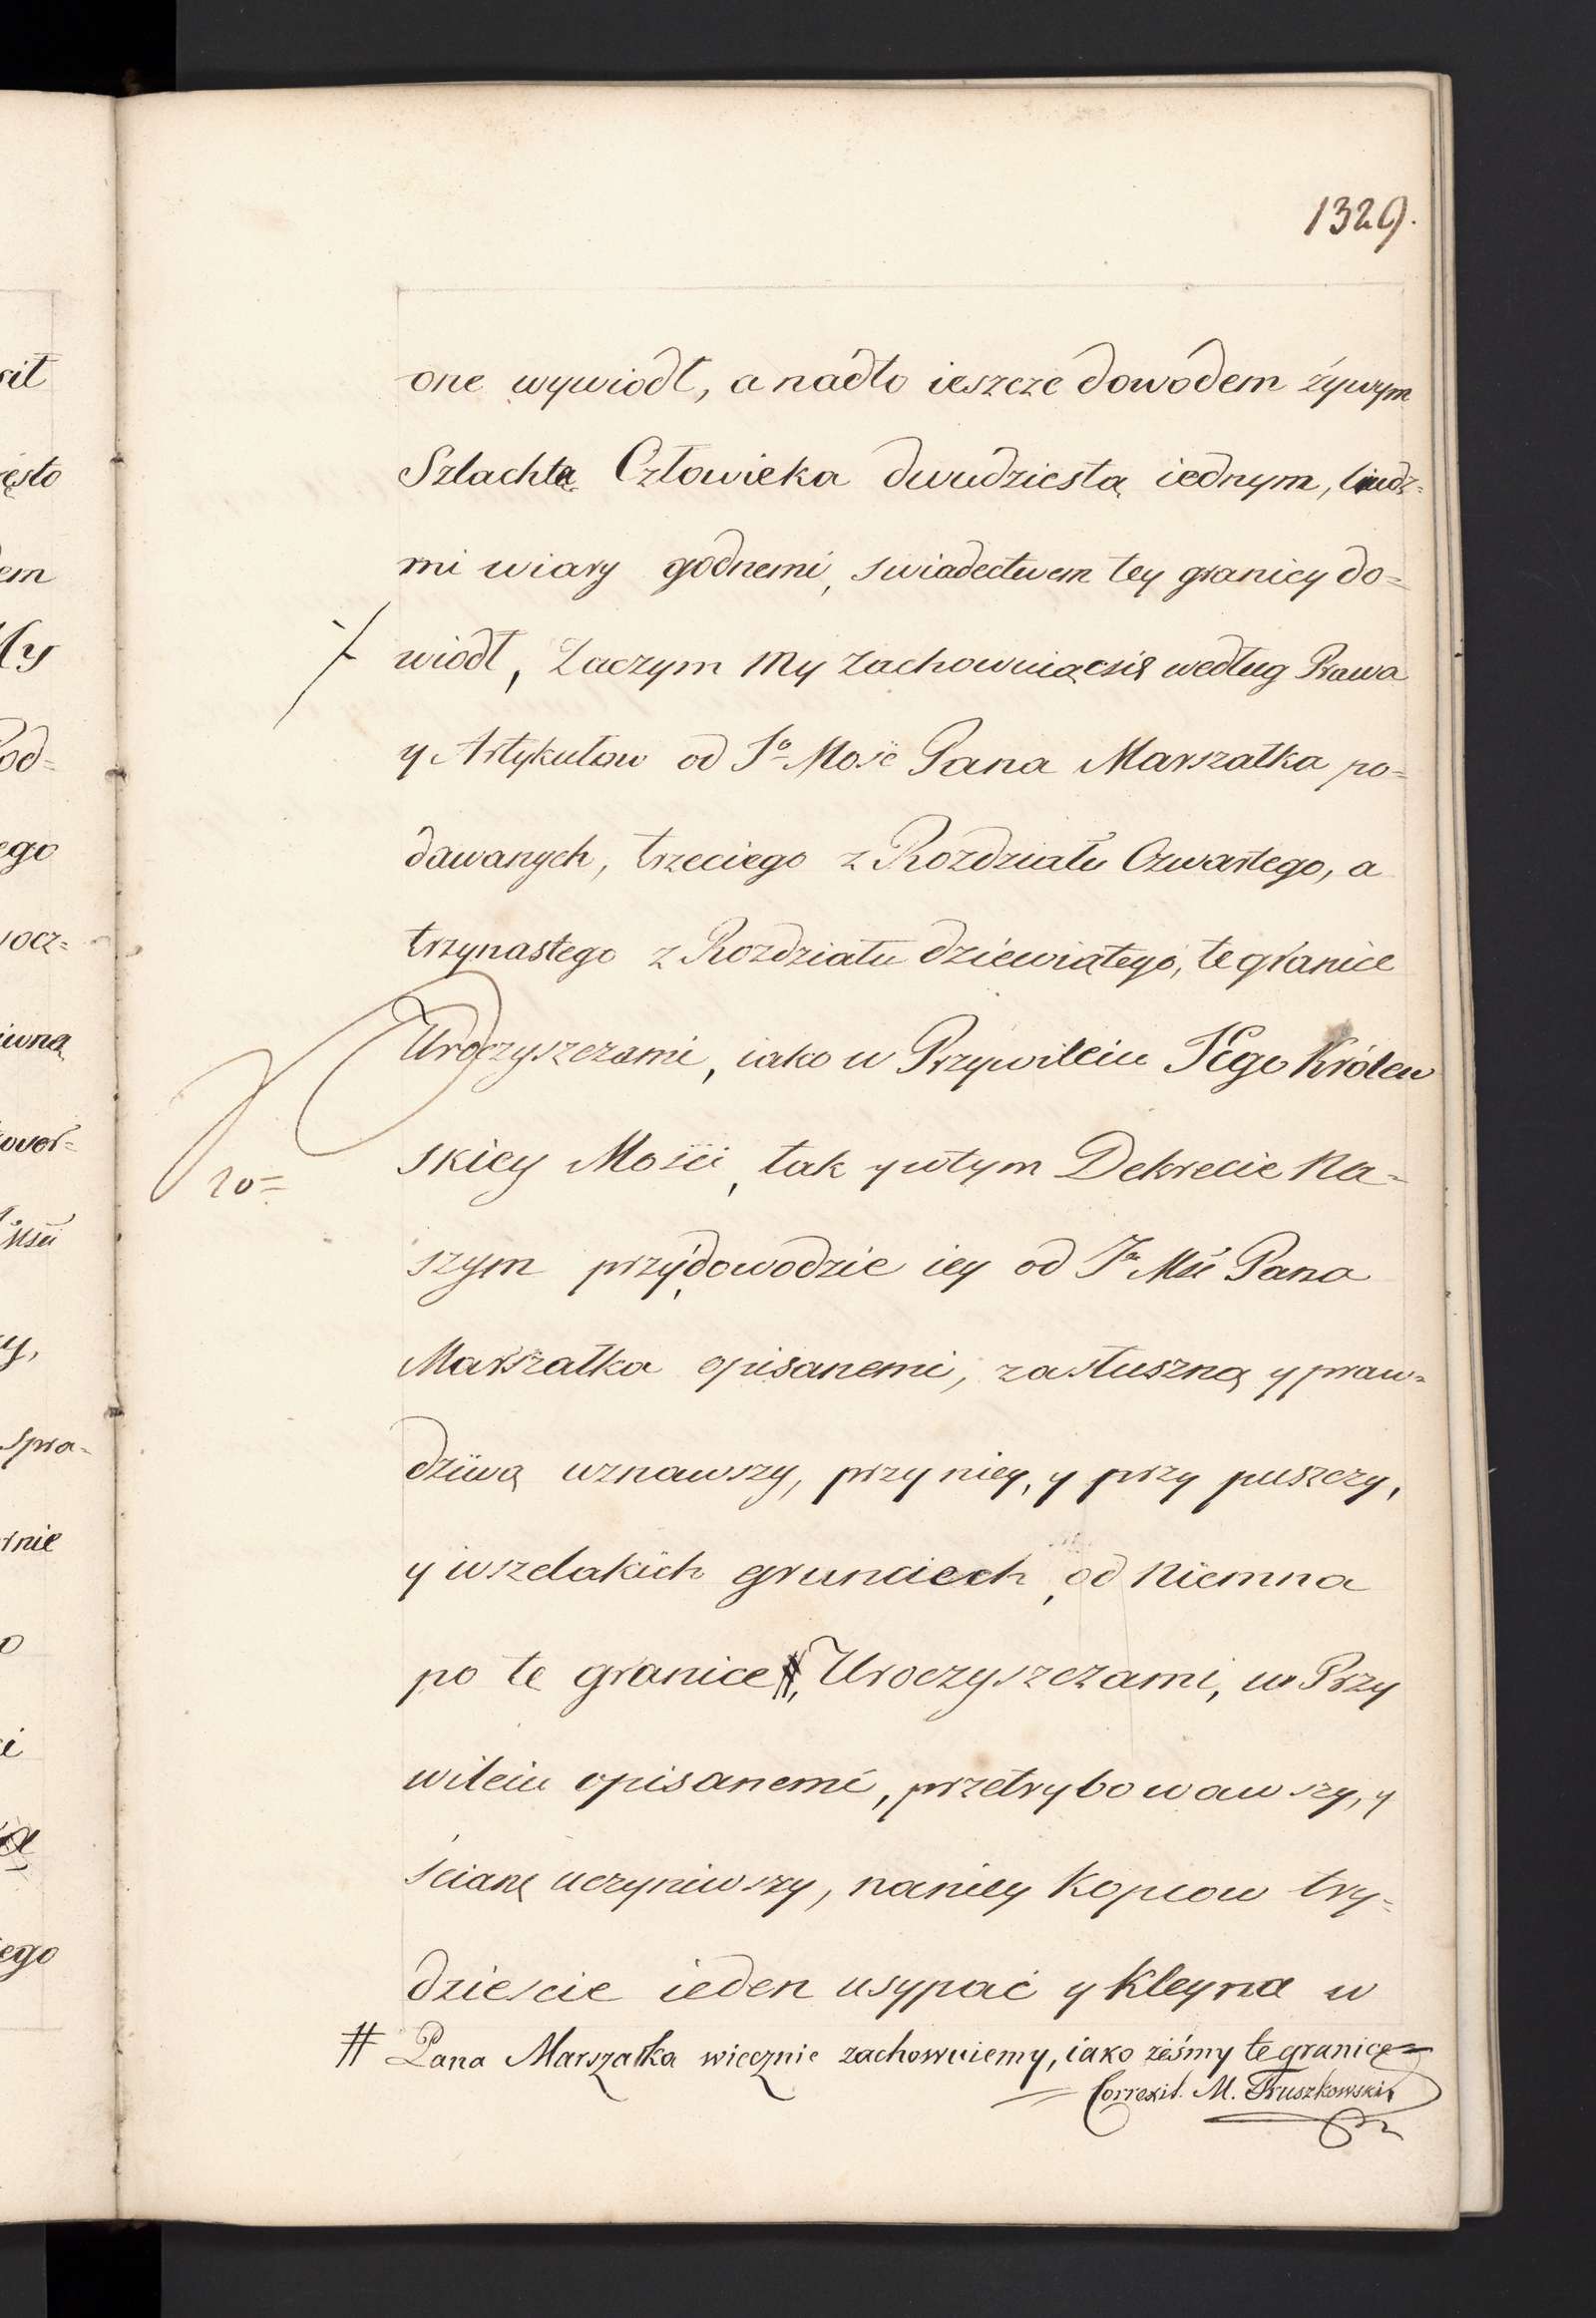 1329.
one wywiodł, a nadto ieszcze dowodem żywym
Szlachtą Człowieka dwudziestą iednym, ludz=
mi wiary godnemi, swiadectwem tey granicy do=
wiodł, Zaczym My zachowuiącsię według Prawa
y Artykułow od Jº Mość Pana Marszałka po=
dawanych, trzeciego z Rozdziału Czwartego, a
trzynastego z Rozdziału dziewiątego, te granice
Uroczyszczami, iako w Przywileiu Jego Królew
skiey Mości, tak y wtym Dekrecie Na=
20=
szym przy dowodzie iey od Jº Mści Pana
Marszałka opisanemi, za słuszną y praw=
dziwą uznawszy, przy niey, y przy puszczy,
y wszelakich grunciech, od Niemna
po te granice #, Uroczyszczami, w Przy
wileiu opisanemi, przetrybowawszy, y
ścianę uczyniwszy, naniey Kopcow try=
dziescie ieden usypać y Kleyna w
# Pana Marszałka wiecznie zachowuiemy, iako żeśmy te granice=
Correxit. M. Truszkowski